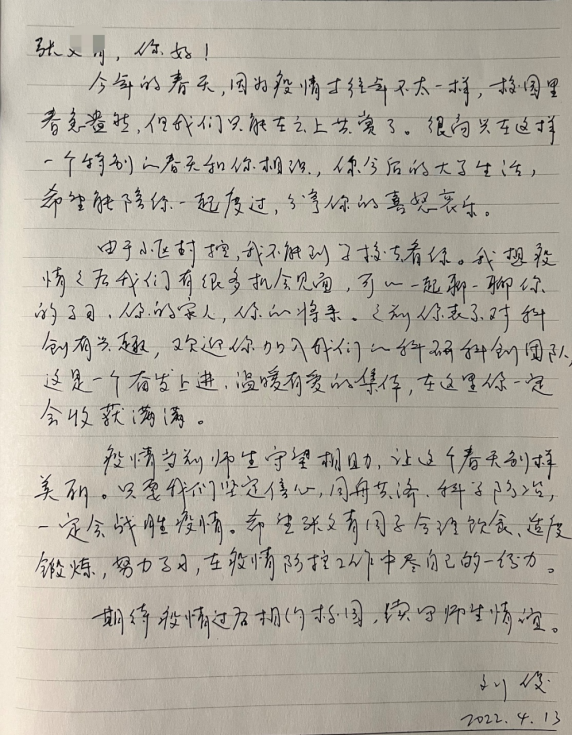 张文 ，你好！
今年的春天，因为疫情才往年不太一样，校园里
春意盎然，但我们只能在云上共赏了。很高兴在这样
一个特别的春天和你相识，你今后的大学生活，
希望能陪你一起度过，分享你的喜怒哀乐。
由于小区封控，我不能到学校去看你。我想疫
情之后我们有很多机会见面，可以一起聊一聊你
的学习，你的家人，你的将来。之前你表示对科
创有兴趣，欢迎你加入我们的科研科创团队，
这是一个奋发上进、温暖有爱的集体，在这里你一定
会收获满满。
疫情当前师生守望相助，让这个春天别样
美丽。只要我们坚定信心，同舟共济、科学防治，
一定会战胜疫情。希望张文青同学合理饮食、适度
锻炼，努力学习，在疫情防控工作中尽自己的一份力。
期待疫情过后相约校园，续写师生情谊。
刘俊
2022.4.13